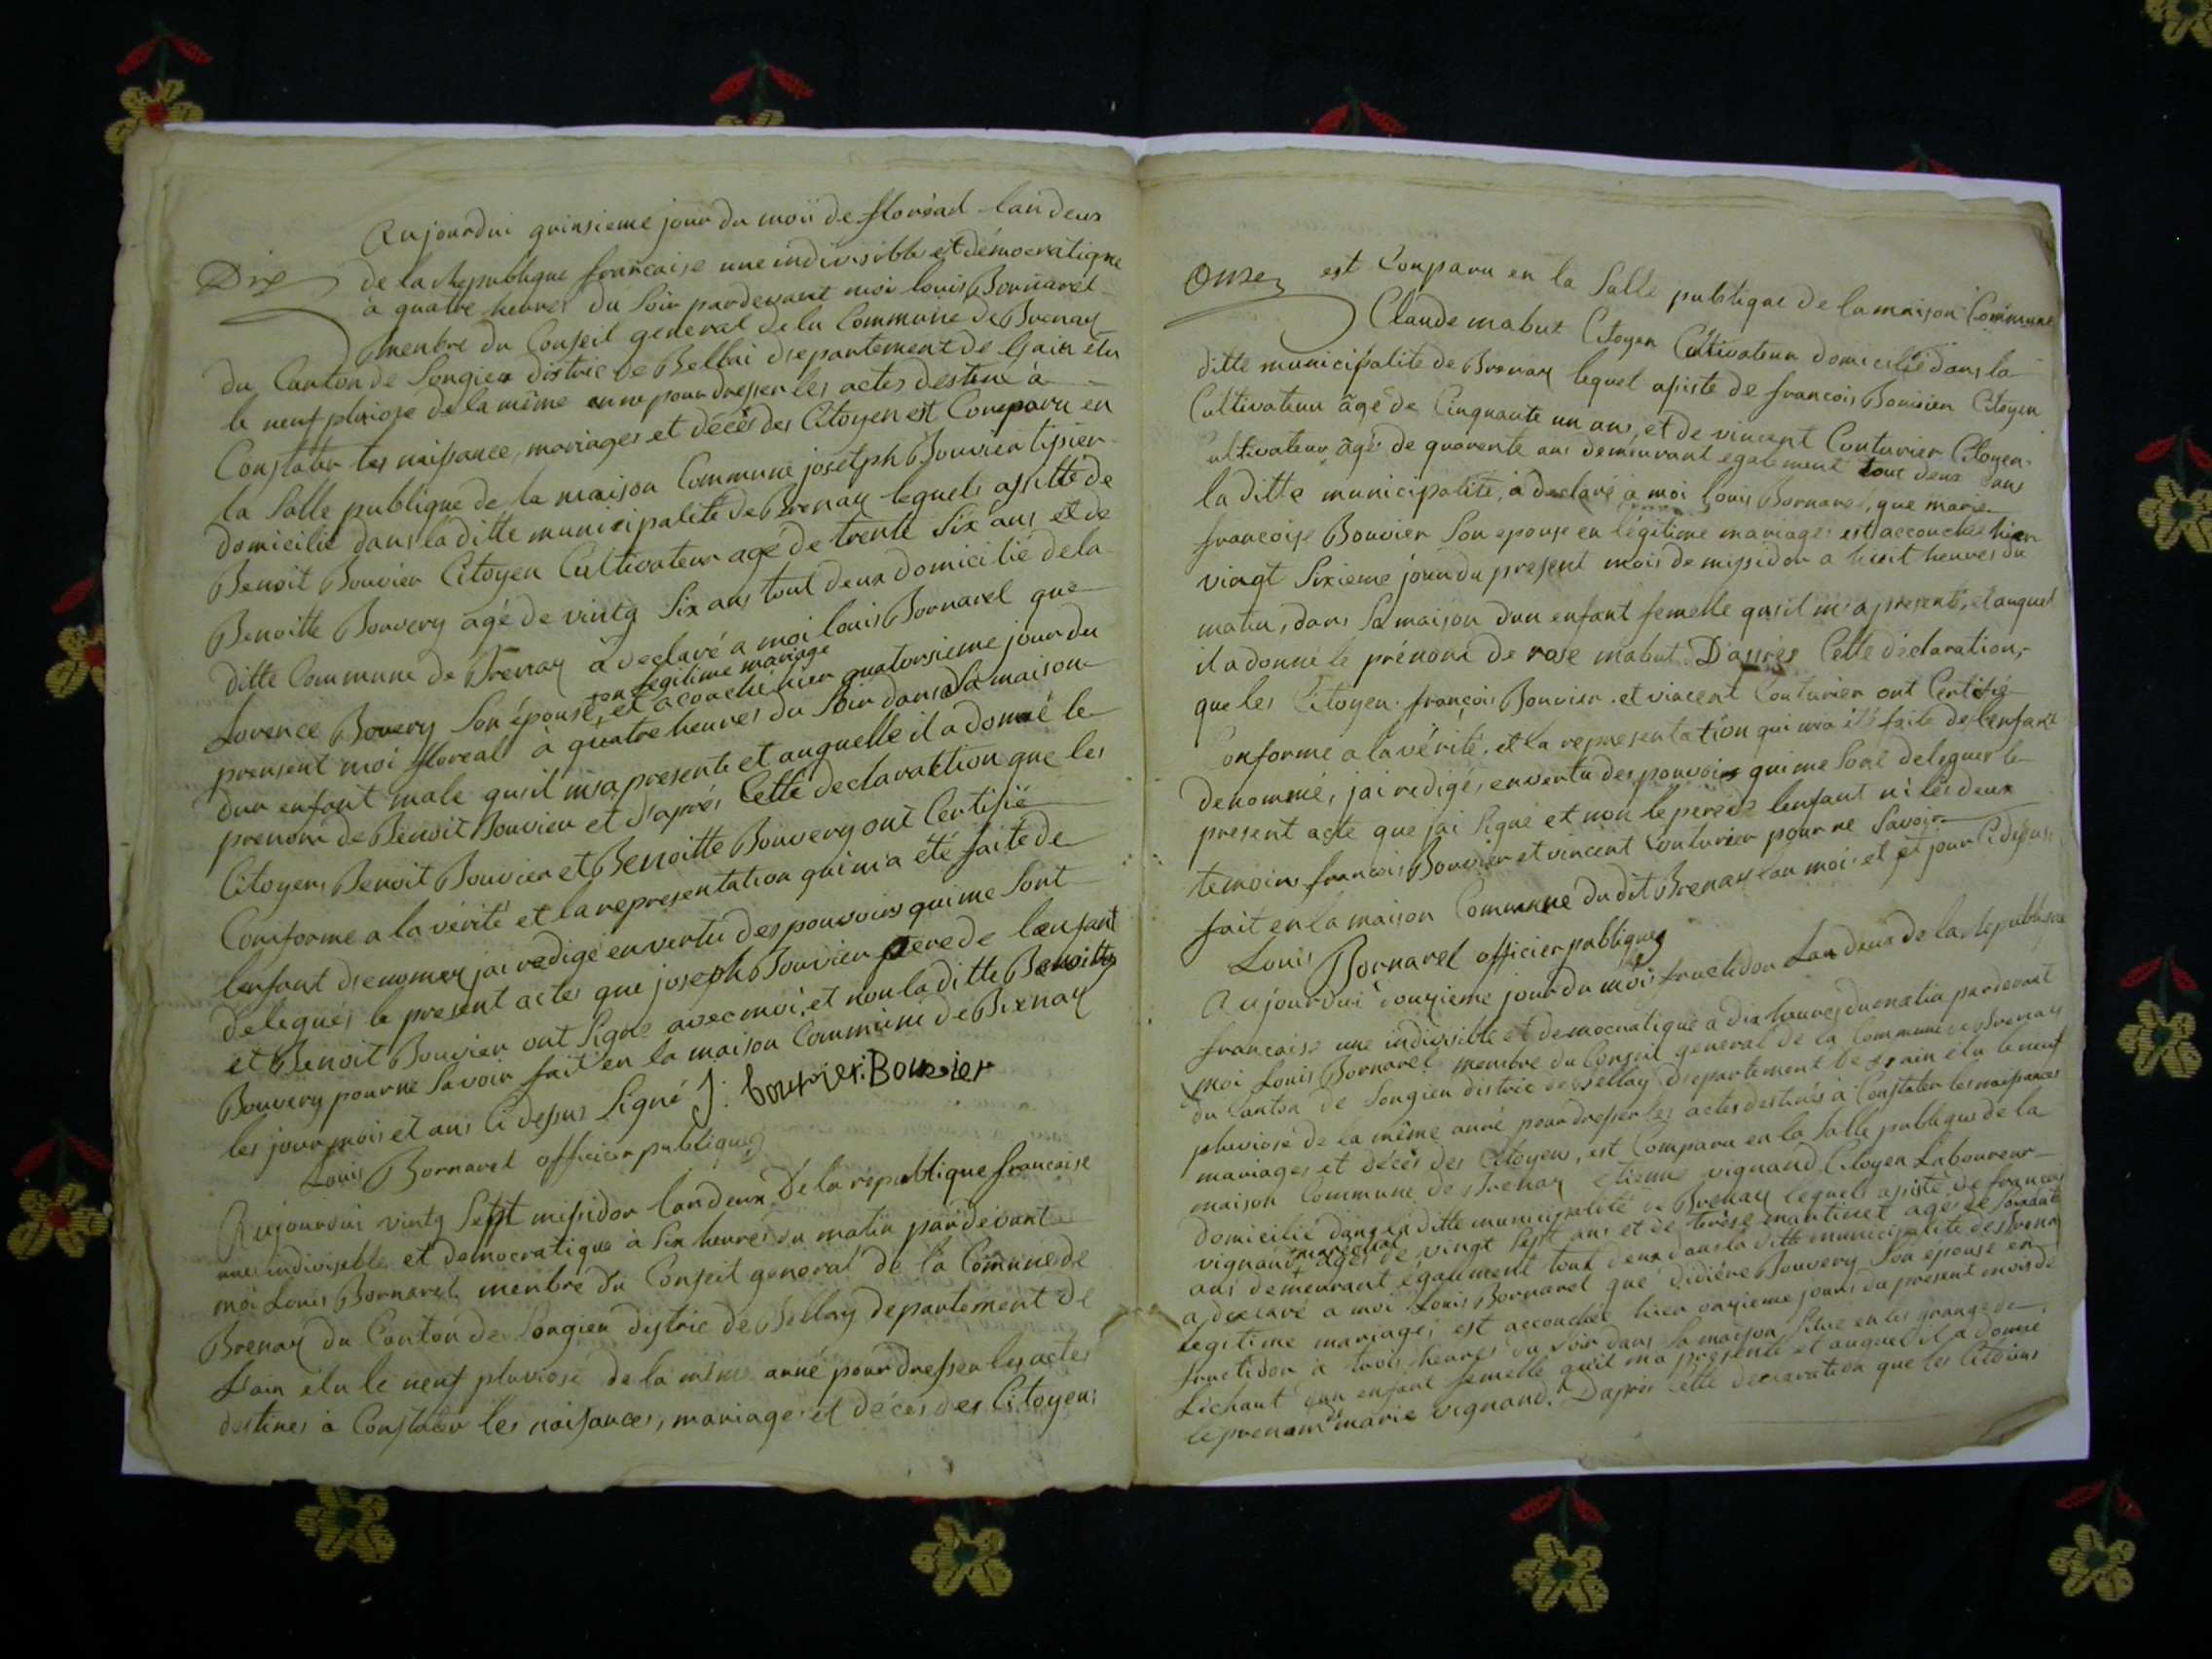 Aujourdui quinsieme jour du moii de floréal lan deux
Dix
de la Republique francaise une indivisible et démocratique
à quatre heures du Soir pardevant moi louis Bornarel
menbre du Conseil general de la Commune de Brenay
du Canton de Songieu distric de Bellai departement de lain élu
le neuf pluviose de la même anné pour dresser les actes destiné à
Constater les naissance, mariages et décès des Citoyen est Comparu en
la Salle publique de la maison Commune josetph Bouvier tissier
domicilié dans la ditte municipalité de Brenay lequels assisté de
Benoit Bouvier Citoyen Cultivateur agé de trente Six ans et de
Benoitte Bouvery agé de vintg Six ans tout deux domicilié de la
ditte Commune de Brenay a declaré a moi louis Bornarel que
en legitime mariage
Lorence Bouvery Son épouse, est acouché hier quatorsieme jour du
prensent moi floreal à quatre heures du Soir dans Sa maison
dun enfant male qu'il m'a presente et auquelle il a donné le
prenom de Benoit Bouvier et d'aprés Cette declaration que les
Citoyens Benoit Bouvier et Benoitte Bouvery ont Certifié
Conforme a la vérité et la representation qui m'a été faite de
lenfant denomer jai redigé en vertu des pouvoirs qui me Sont
delegués le present actes que joseph Bouvier père de lenfant
et Benoit Bouvier ont Signé avec moi, et non la ditte Benoitte
Bouvery pour ne Savoir fait en la maison Commune de Brenay
les jour mois et ans Ci dessus Signé J: bouvier: Bouvier
Louis Bornarel officier publique
Aujourdui vintg Sept missidor lan deux de la republique francaise
une indivisible et democratique à Six heures du matin pardevant
moi Louis Bornarel menbre du Conseil general de la Commune de
Brenay du Canton de Songieu distric de Bellay departement de
Lain élu le neuf pluviose de la même anné pour dresser les actes
destines à Constater les naisances, mariages et décès des Citoyens
Onze est Conparu en la Salle publique de la maison Commune
Claude mabut Citoyen Cultivateur domicilié dans la
ditte municipalité de Brenay lequel assiste de francois Bouvier Citoyen
Cultivateur âgé de Cinquante un ans, et de vincent Couturier Citoyen
Cultivateur âgé de quarente ans demeurant egalement tout deux dans
la ditte municipalité, à declaré a moi louis Bornarel, que marie
francoise Bouvier Son epouse en légitime mariage est accouchée hier
vingt Sixieme jour du present mois de missidor a huit heures du
matin, dans Sa maison dun enfant femelle qu'il m'a presenté, et auquel
il a donné le prénom de rose mabut. D'après Cette déclaration,
que les Citoyen françois Bouvier et vincent Couturier ont Certifié
Conforme a la vérité, et la representation qui m'a été faite de lenfant
denommé, jai redigé, en vertu des pouvoirs qui me Sont delegues le
present acte que jai Signé et non le père de lenfant ni les deux
temoins francois Bouvier et vincent Couturier pour ne Savoir
fait en la maison Commune du dit Brenay lan mois et et jour Cidessus
Louis Bornarel officier publique
Aujourdui douzieme jour du mois fructidor Lan deux de la Republique
francaise une indivisible et democratique a dix heures du matin pardevant
moi Louis Bornarel membre du Conseil general de la Commune de Brenay
du Canton de Songieu distric de Bellay departement de Lain élu le neuf
pluviose de la même anné pour dresser les actes destinés à Constater les naissances
mariages et décès des Citoyens, est Comparu en la Salle publique de la
maison Commune de Brenay etienne vignand Citoyen Laboureur
domicilié dans la ditte municipalité de Brenay lequels assisté de francois
marechal
vignand agés de vingt Sept ans et de terése martinet agés de Soixante
ans demeurant égaument tout deux dans la ditte municipalité de Brenay
a declaré a moi Louis Bornarel que didiére Bouvery Son épouse en
legitime mariage, est accouchée hier onzieme jours du present mois de
fructidor à trois heures du Soir dans Sa maison Situé en les grange de
Lichaut dun enfant femelle qu'il ma presente et auquel il a donné
le prenom de marie vignand. Daprès cette declaration que les Citoiens